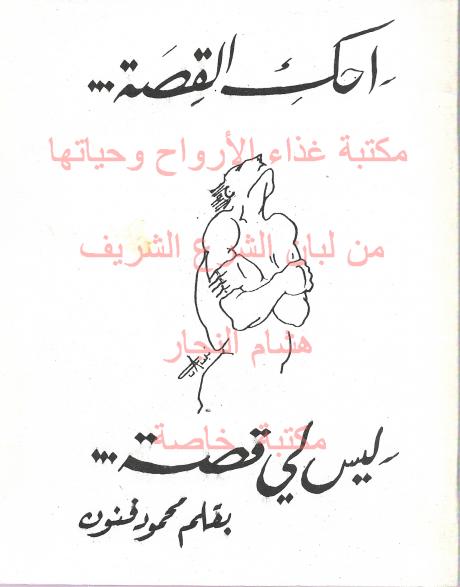 احكِ القِصَة...
مكتبة غذاء الأرواح وحياتها
من لبان الشرع الشريف
هشام النجار
مكتبة خاصة
ليس لي قصة...
بقلم محمود فنون